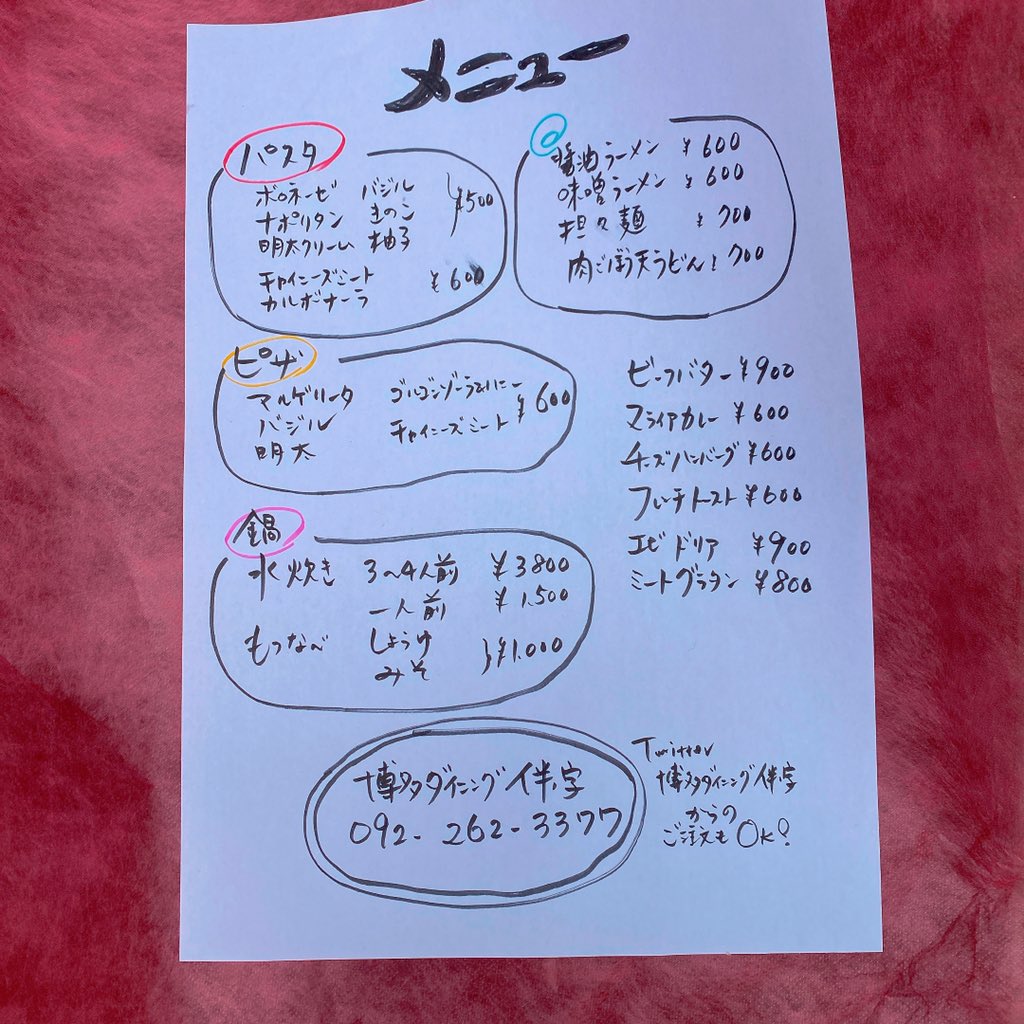 メニュー
パスタ
ボロネーゼ バジル
ナポリタン きのこ ¥500
明太クリーム 柚子
チャイニーズミート ¥600
カルボナーラ
醤油ラーメン ¥600
味噌ラーメン ¥600
担々麺 ¥700
肉ごぼう天うどん 700
ピザ
マルゲリータ ゴルゴンゾーラハニー
バジル チャイニーズミート ¥600
明太
ビーフバター ¥900
マライアカレー ¥600
チーズハンバーグ ¥600
フレンチトースト ¥600
エビドリア ¥900
ミートグラタン ¥800
鍋
水炊き 3〜4人前 ¥3800
一人前 ¥1,500
もつなべ しょうゆ
みそ ¥1,000
博多ダイニング 伴.字
092-262-3377
Twitter
博多ダイニング 伴.字
からの
ご注文も OK!